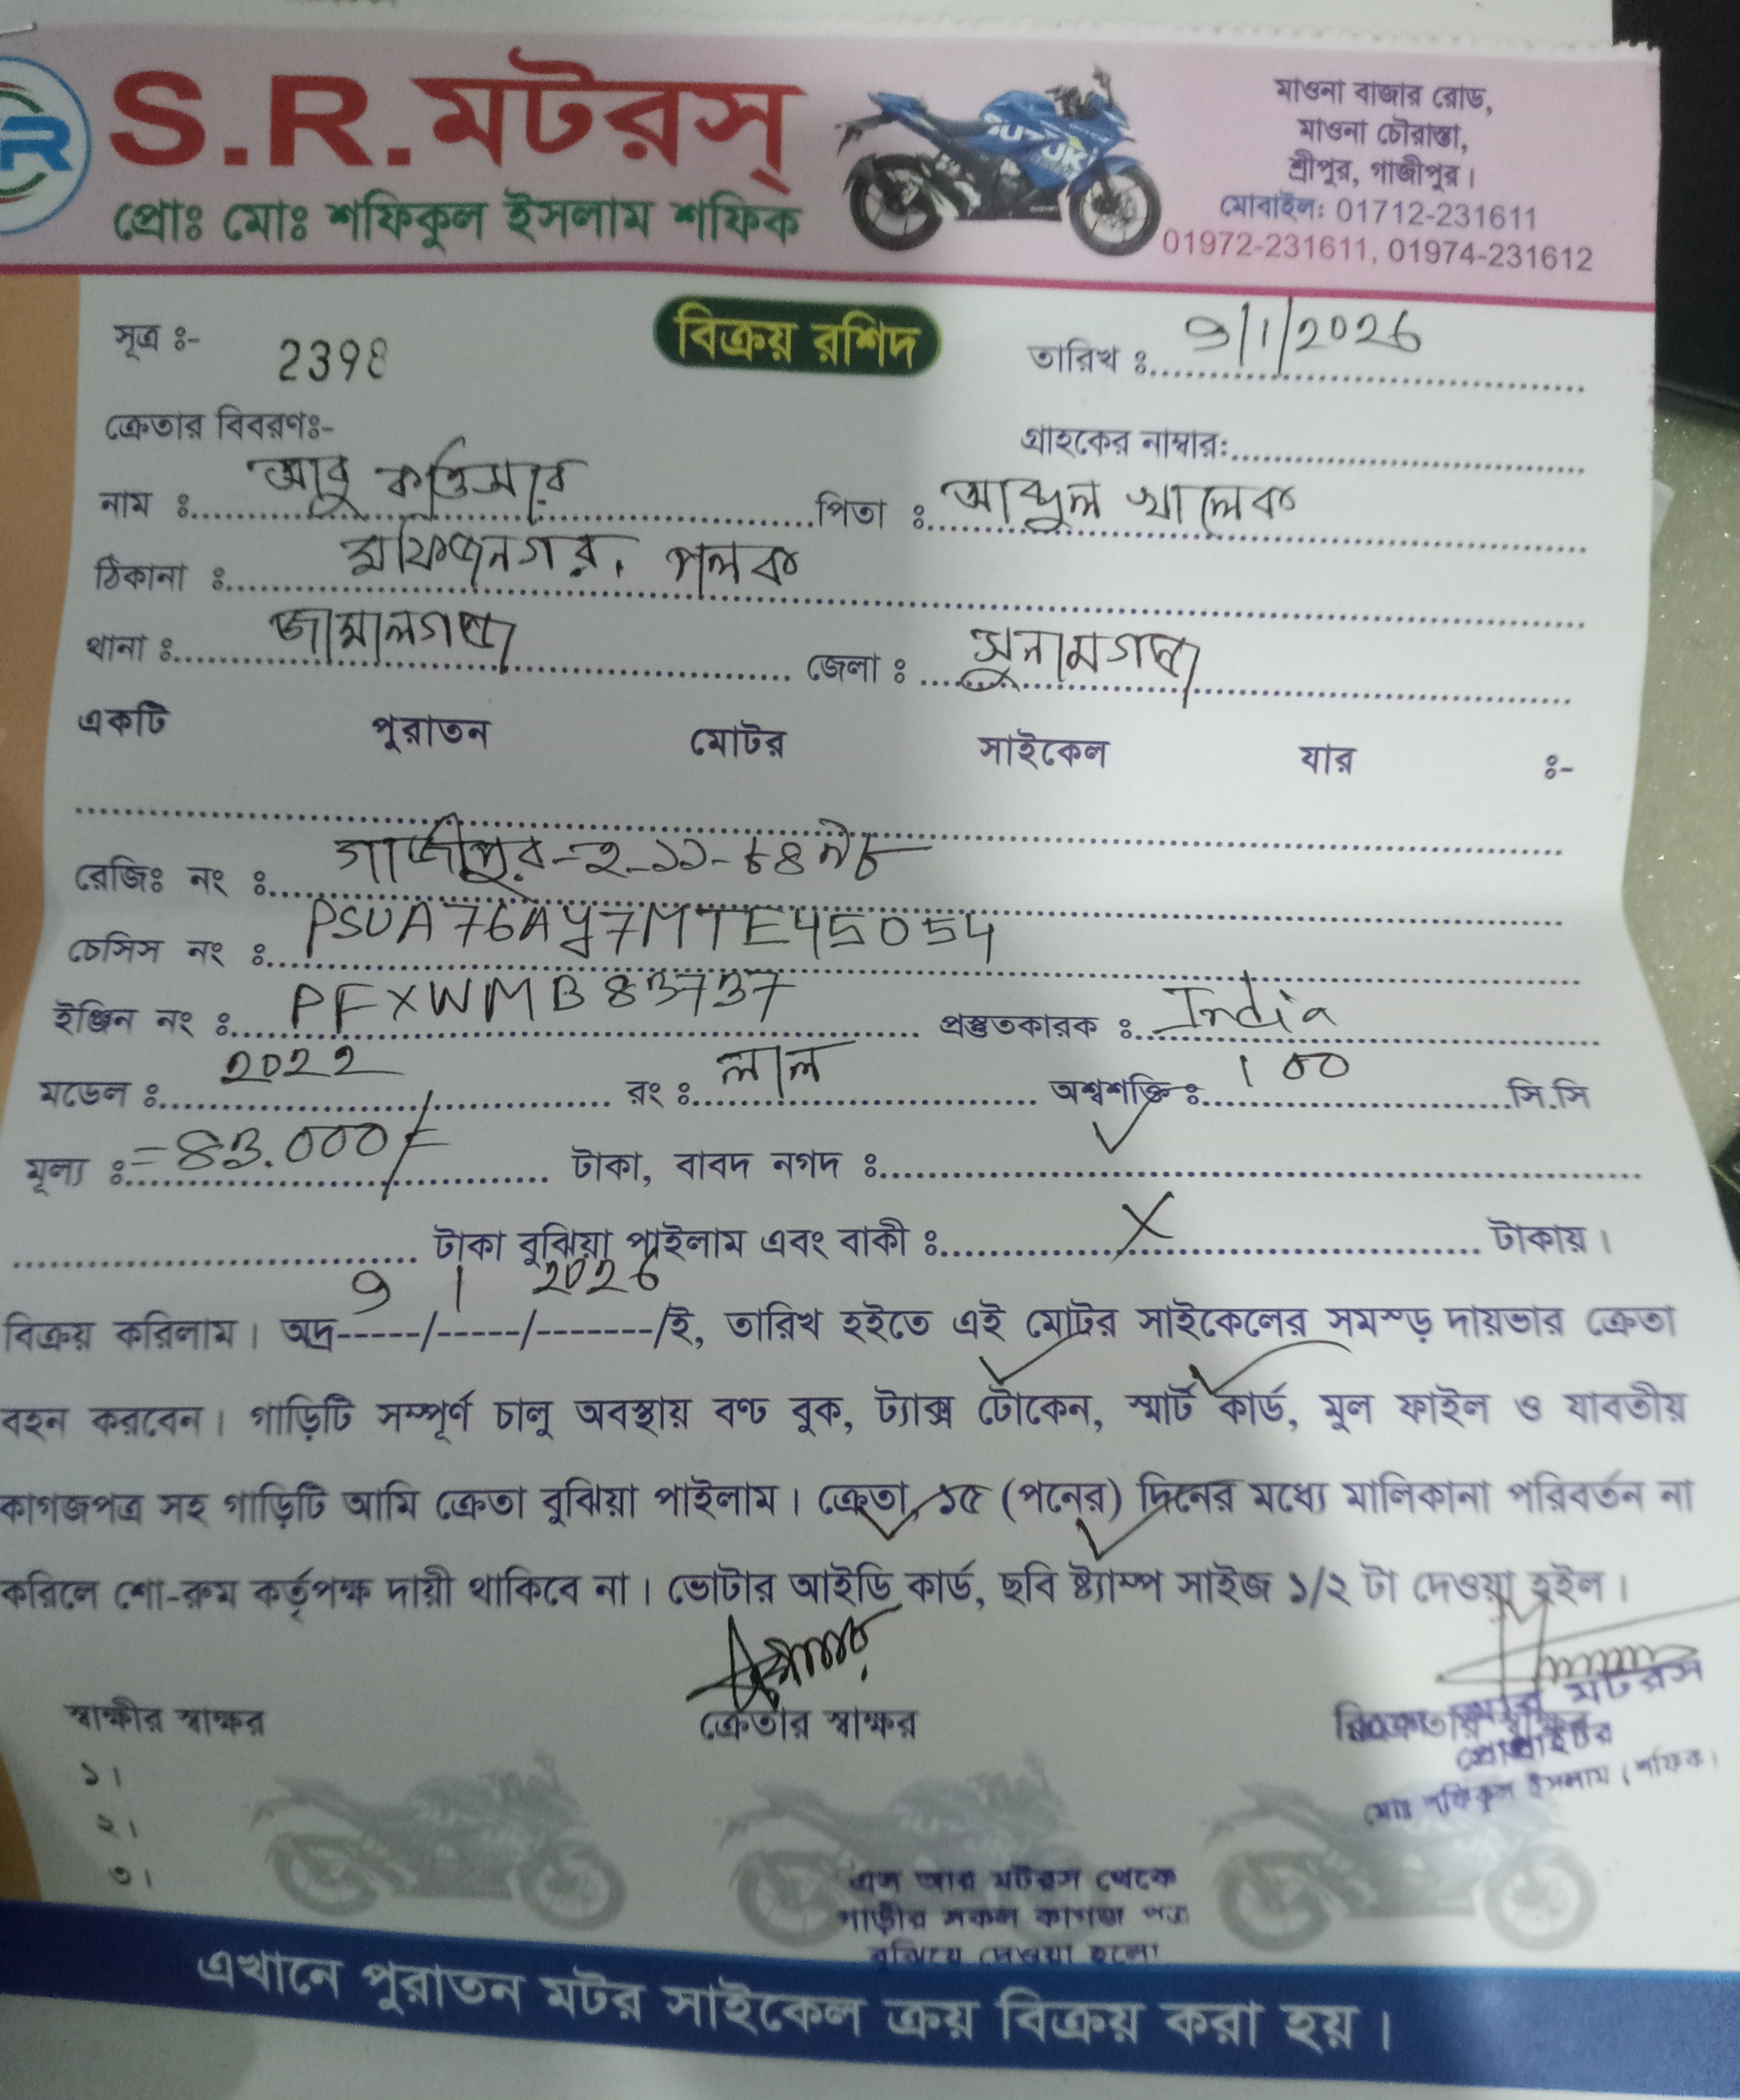 S.R.মটরস্
প্রোঃ মোঃ শফিকুল ইসলাম শফিক
মাওনা বাজার রোড,
মাওনা চৌরাস্তা,
শ্রীপুর, গাজীপুর।
মোবাইল: 01712-231611
01972-231611, 01974-231612
SUZUKI
সূত্র ঃ- 2398
বিক্রয় রশিদ
তারিখ ঃ 9/1/2026
ক্রেতার বিবরণঃ-
গ্রাহকের নাম্বার:
নাম ঃ আবু কাওসার পিতা ঃ আব্দুল খালেক
ঠিকানা ঃ মফিজনগর, পলক
থানা ঃ জামালগঞ্জ জেলা ঃ সুনামগঞ্জ
একটি পুরাতন মোটর সাইকেল যার ঃ-
রেজিঃ নং ঃ গাজীপুর-হ-১১-
চেসিস নং ঃ PSUA76AY7MTE45054
ইঞ্জিন নং ঃ PFXWMB83737 প্রস্তুতকারক ঃ India
মডেল ঃ 2022 রং ঃ লাল অশ্বশক্তি ঃ 100 সি.সি
মূল্য ঃ =83.000/= টাকা, বাবদ নগদ ঃ
টাকা বুঝিয়া পাইলাম এবং বাকী ঃ X টাকায়।
বিক্রয় করিলাম। অদ্র 9/1/2026/ই, তারিখ হইতে এই মোটর সাইকেলের সমস্ড় দায়ভার ক্রেতা
বহন করবেন। গাড়িটি সম্পূর্ণ চালু অবস্থায় বণ্ঢ বুক, ট্যাক্স টোকেন, স্মার্ট কার্ড, মুল ফাইল ও যাবতীয়
কাগজপত্র সহ গাড়িটি আমি ক্রেতা বুঝিয়া পাইলাম। ক্রেতা, ১৫ (পনের) দিনের মধ্যে মালিকানা পরিবর্তন না
করিলে শো-রুম কর্তৃপক্ষ দায়ী থাকিবে না। ভোটার আইডি কার্ড, ছবি ষ্ট্যাম্প সাইজ ১/২ টা দেওয়া হইল।
স্বাক্ষীর স্বাক্ষর
ক্রেতার স্বাক্ষর
বিক্রেতার স্বাক্ষর
আর মটরস
প্রোপ্রাইটর
মোঃ শফিকুল ইসলাম (শফিক)
১।
২।
৩।
এস আর মটরস থেকে
গাড়ীর সকল কাগজ পত্র
বুঝিয়ে দেওয়া হলো
এখানে পুরাতন মটর সাইকেল ক্রয় বিক্রয় করা হয়।